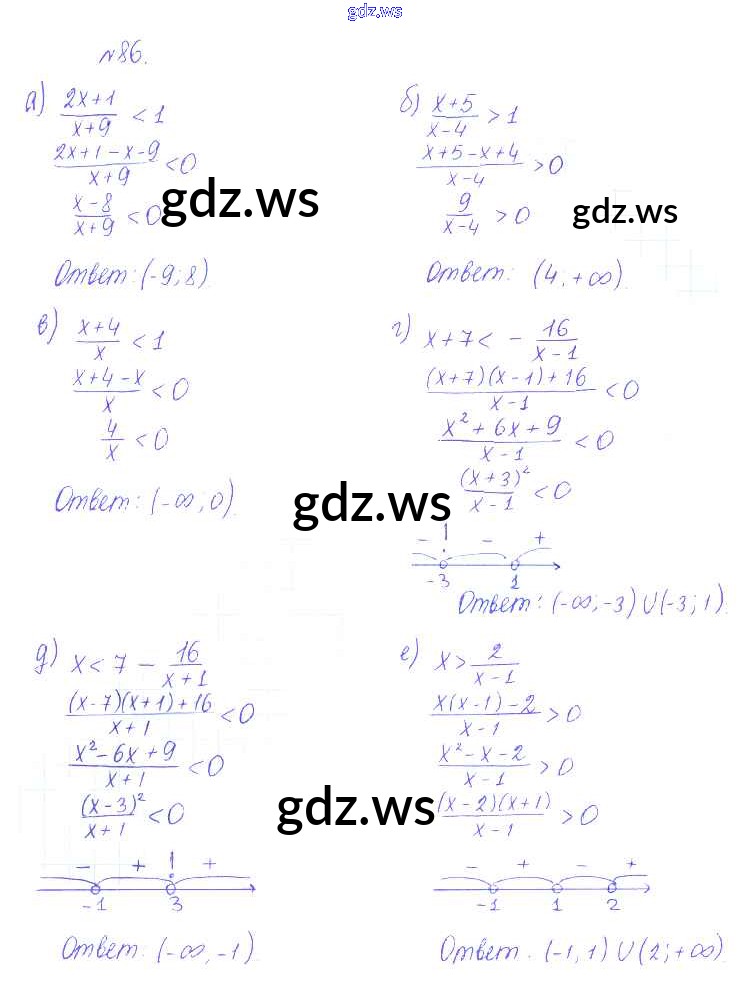 gdz.ws
№86.
а) (2x+1)/(x+9) < 1
(2x+1-x-9)/(x+9) < 0
(x-8)/(x+9) < 0
gdz.ws
Ответ: (-9; 8)
б) (x+5)/(x-4) > 1
(x+5-x+4)/(x-4) > 0
9/(x-4) > 0
gdz.ws
Ответ: (4; +∞).
в) (x+4)/x < 1
(x+4-x)/x < 0
4/x < 0
Ответ: (-∞; 0).
gdz.ws
г) x+7 < - 16/(x-1)
((x+7)(x-1)+16)/(x-1) < 0
(x²+6x+9)/(x-1) < 0
(x+3)²/(x-1) < 0
- ! - +
-3 1
Ответ: (-∞; -3) ∪ (-3; 1).
д) x < 7 - 16/(x+1)
((x-7)(x+1)+16)/(x+1) < 0
(x²-6x+9)/(x+1) < 0
(x-3)²/(x+1) < 0
gdz.ws
- + ! +
-1 3
Ответ: (-∞, -1).
е) x > 2/(x-1)
(x(x-1)-2)/(x-1) > 0
(x²-x-2)/(x-1) > 0
((x-2)(x+1))/(x-1) > 0
- + - +
-1 1 2
Ответ. (-1, 1) ∪ (2; +∞)